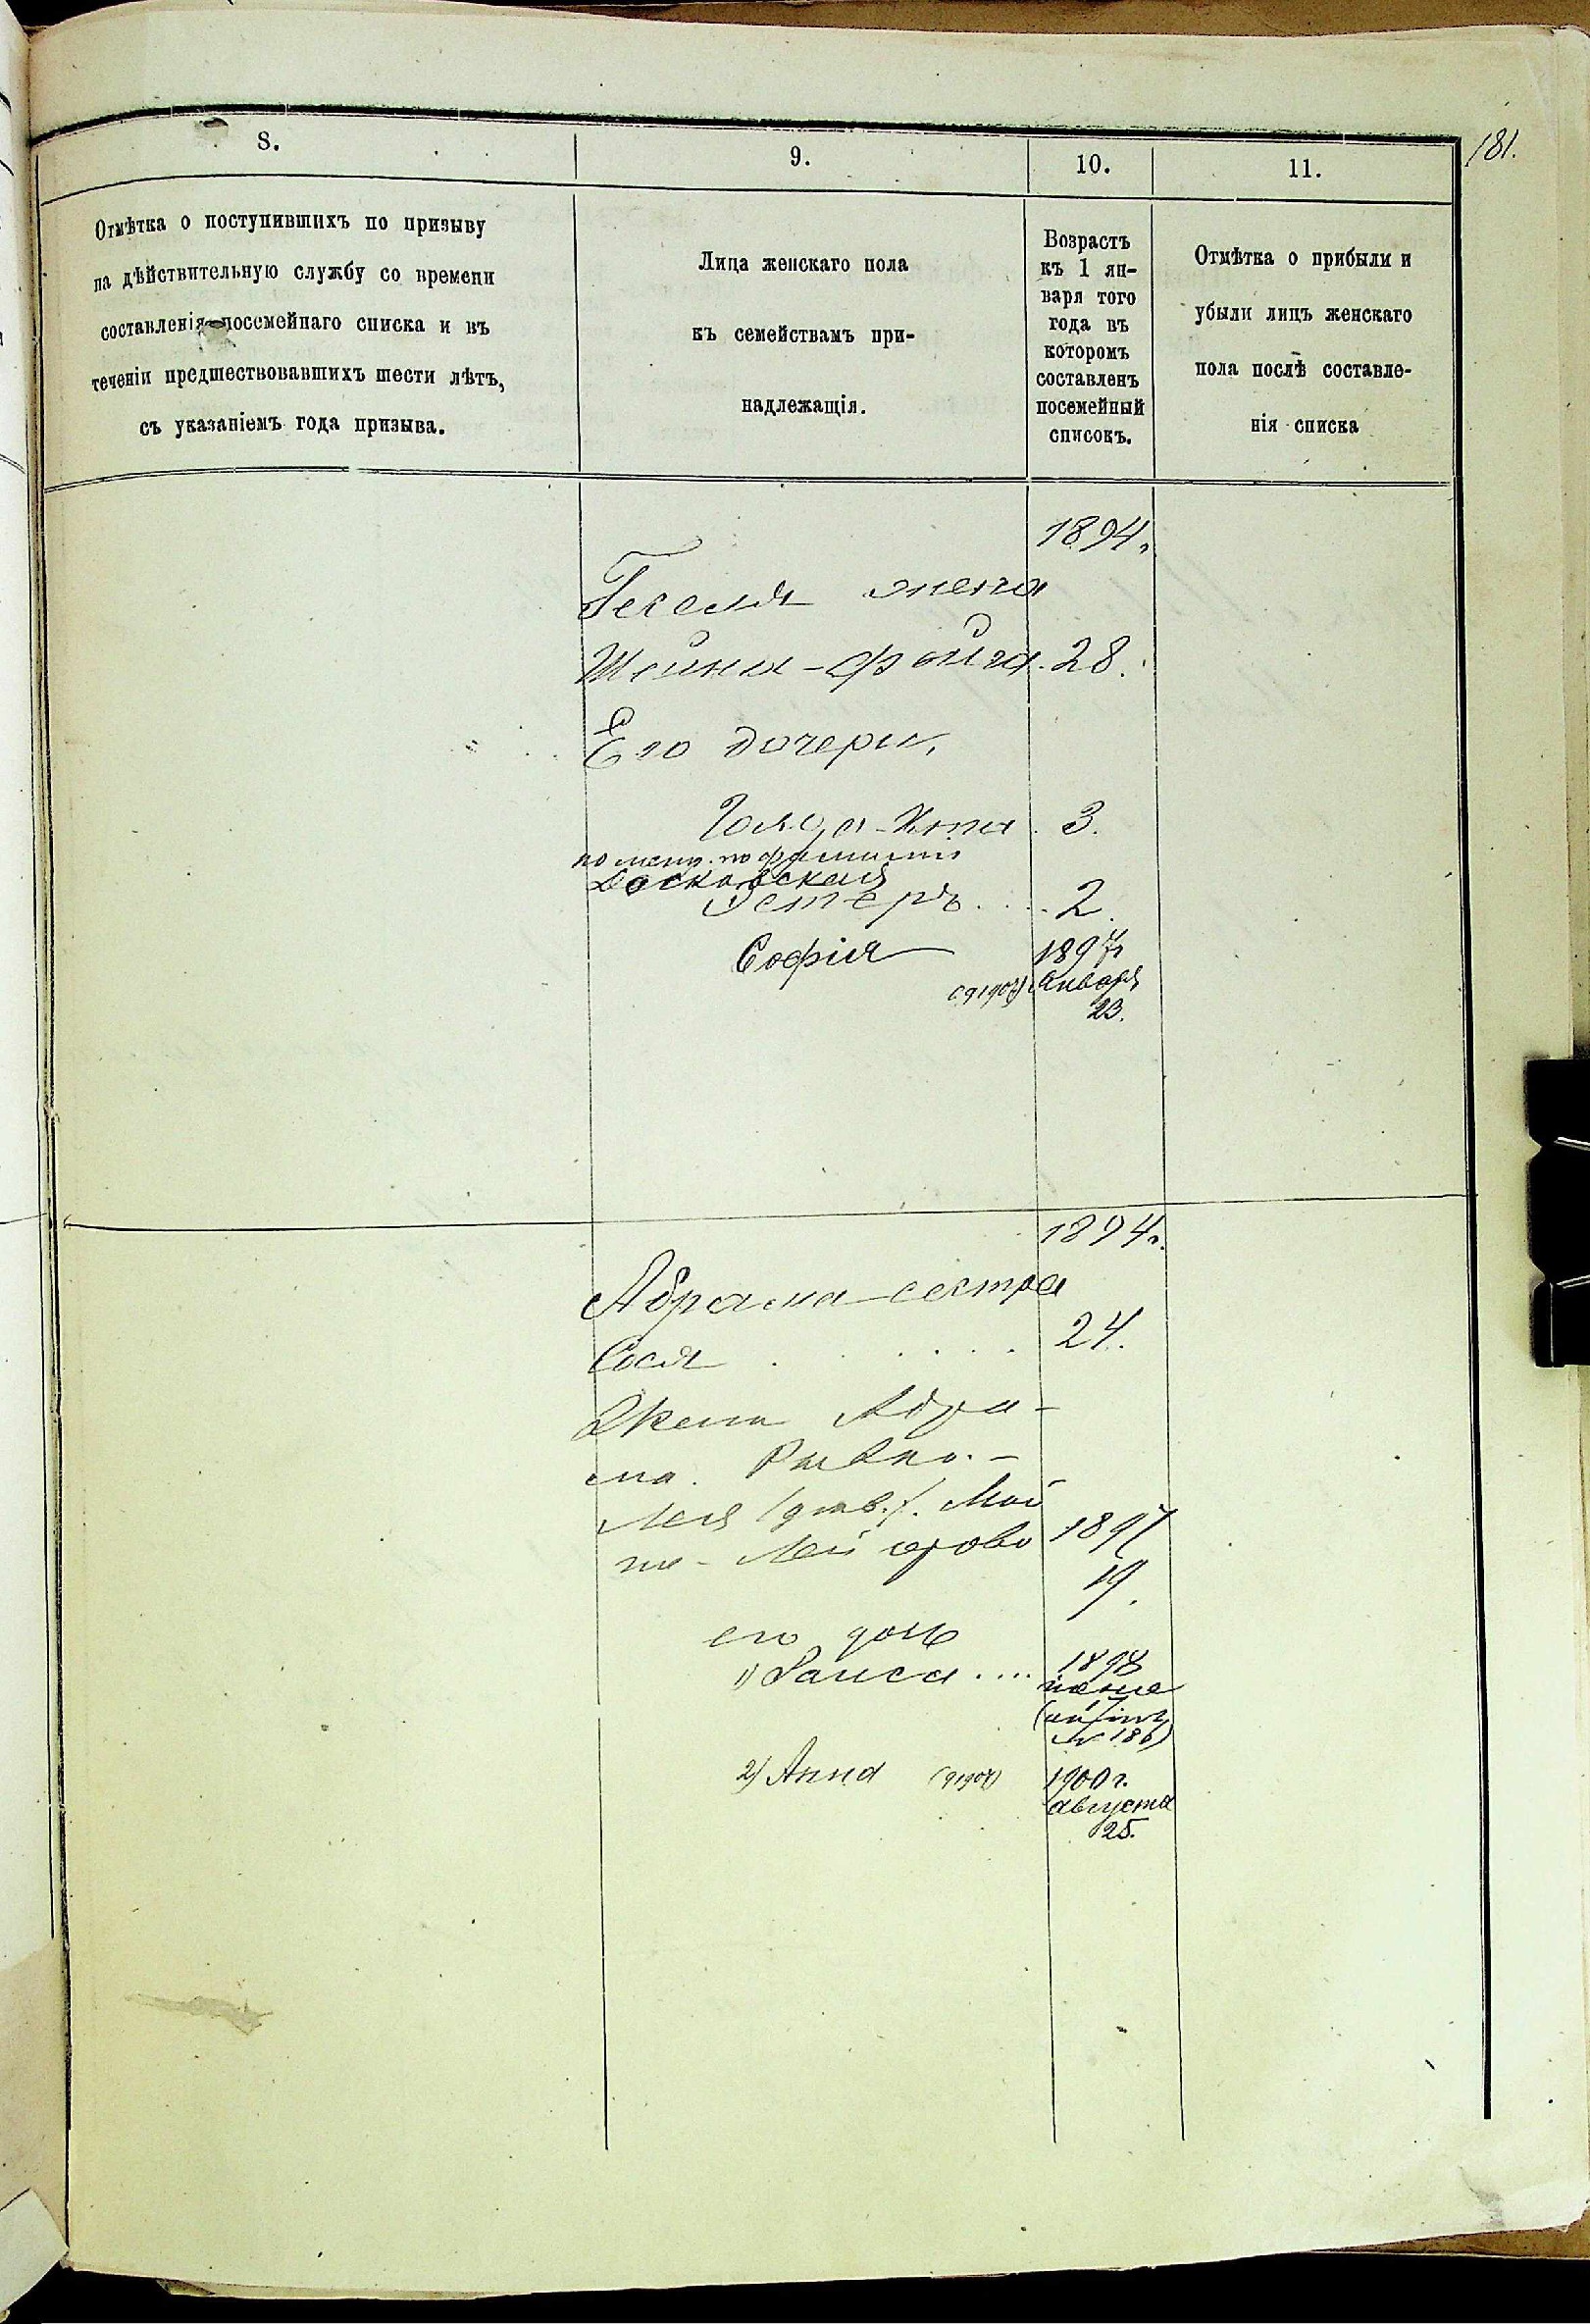 181.
8.
9.
10.
11.
Отмѣтка о поступившихъ по призыву
на дѣйствительную службу со времени
составленія посемейнаго списка и въ
теченіи предшествовавшихъ шести лѣтъ,
съ указаніемъ года призыва.
Лица женскаго пола
къ семействамъ при-
надлежащія.
Возрастъ
къ 1 ян-
варя того
года въ
которомъ
составленъ
посемейный
списокъ.
Отмѣтка о прибыли и
убыли лицъ женскаго
пола послѣ составле-
нія списка
1894.
Гесселя жена
Шейна-Фейга. 28.
Его дочери,
3.
по фамиліи
Эстеръ . . . 2.
Софія 1897г
Января
23.
1894г.
Абрама сестра
Сося . . . . . 24.
Жена Абра-
ма Ривка-
Лея
1897
19.
его дочь
1) Раиса .... 1898
2) Анна 1900 г.
августа
25.